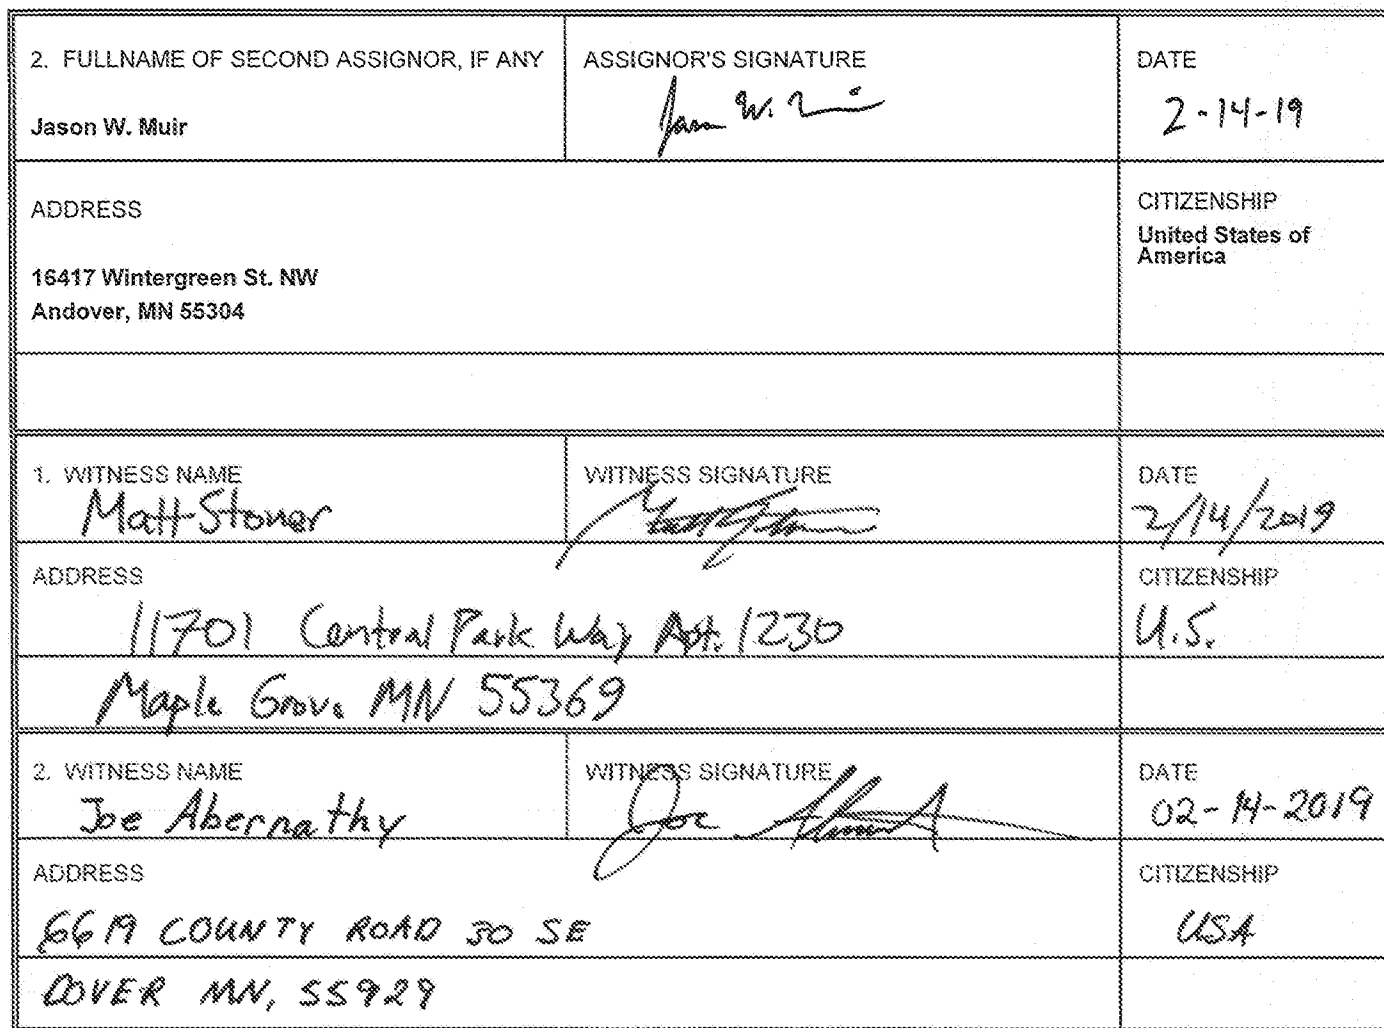 2. FULLNAME OF SECOND ASSIGNOR, IF ANY
Jason W. Muir
ASSIGNOR'S SIGNATURE
Jason W. Muir
DATE
2-14-19
ADDRESS
16417 Wintergreen St. NW
Andover, MN 55304
CITIZENSHIP
United States of
America
1. WITNESS NAME
Matt Stoner
WITNESS SIGNATURE
DATE
2/14/2019
ADDRESS
11701 Central Park Way Apt. 1230
Maple Grove MN 55369
CITIZENSHIP
U.S.
2. WITNESS NAME
Joe Abernathy
WITNESS SIGNATURE
Joe
DATE
02-14-2019
ADDRESS
6619 COUNTY ROAD 30 SE
DOVER MN, 55929
CITIZENSHIP
USA